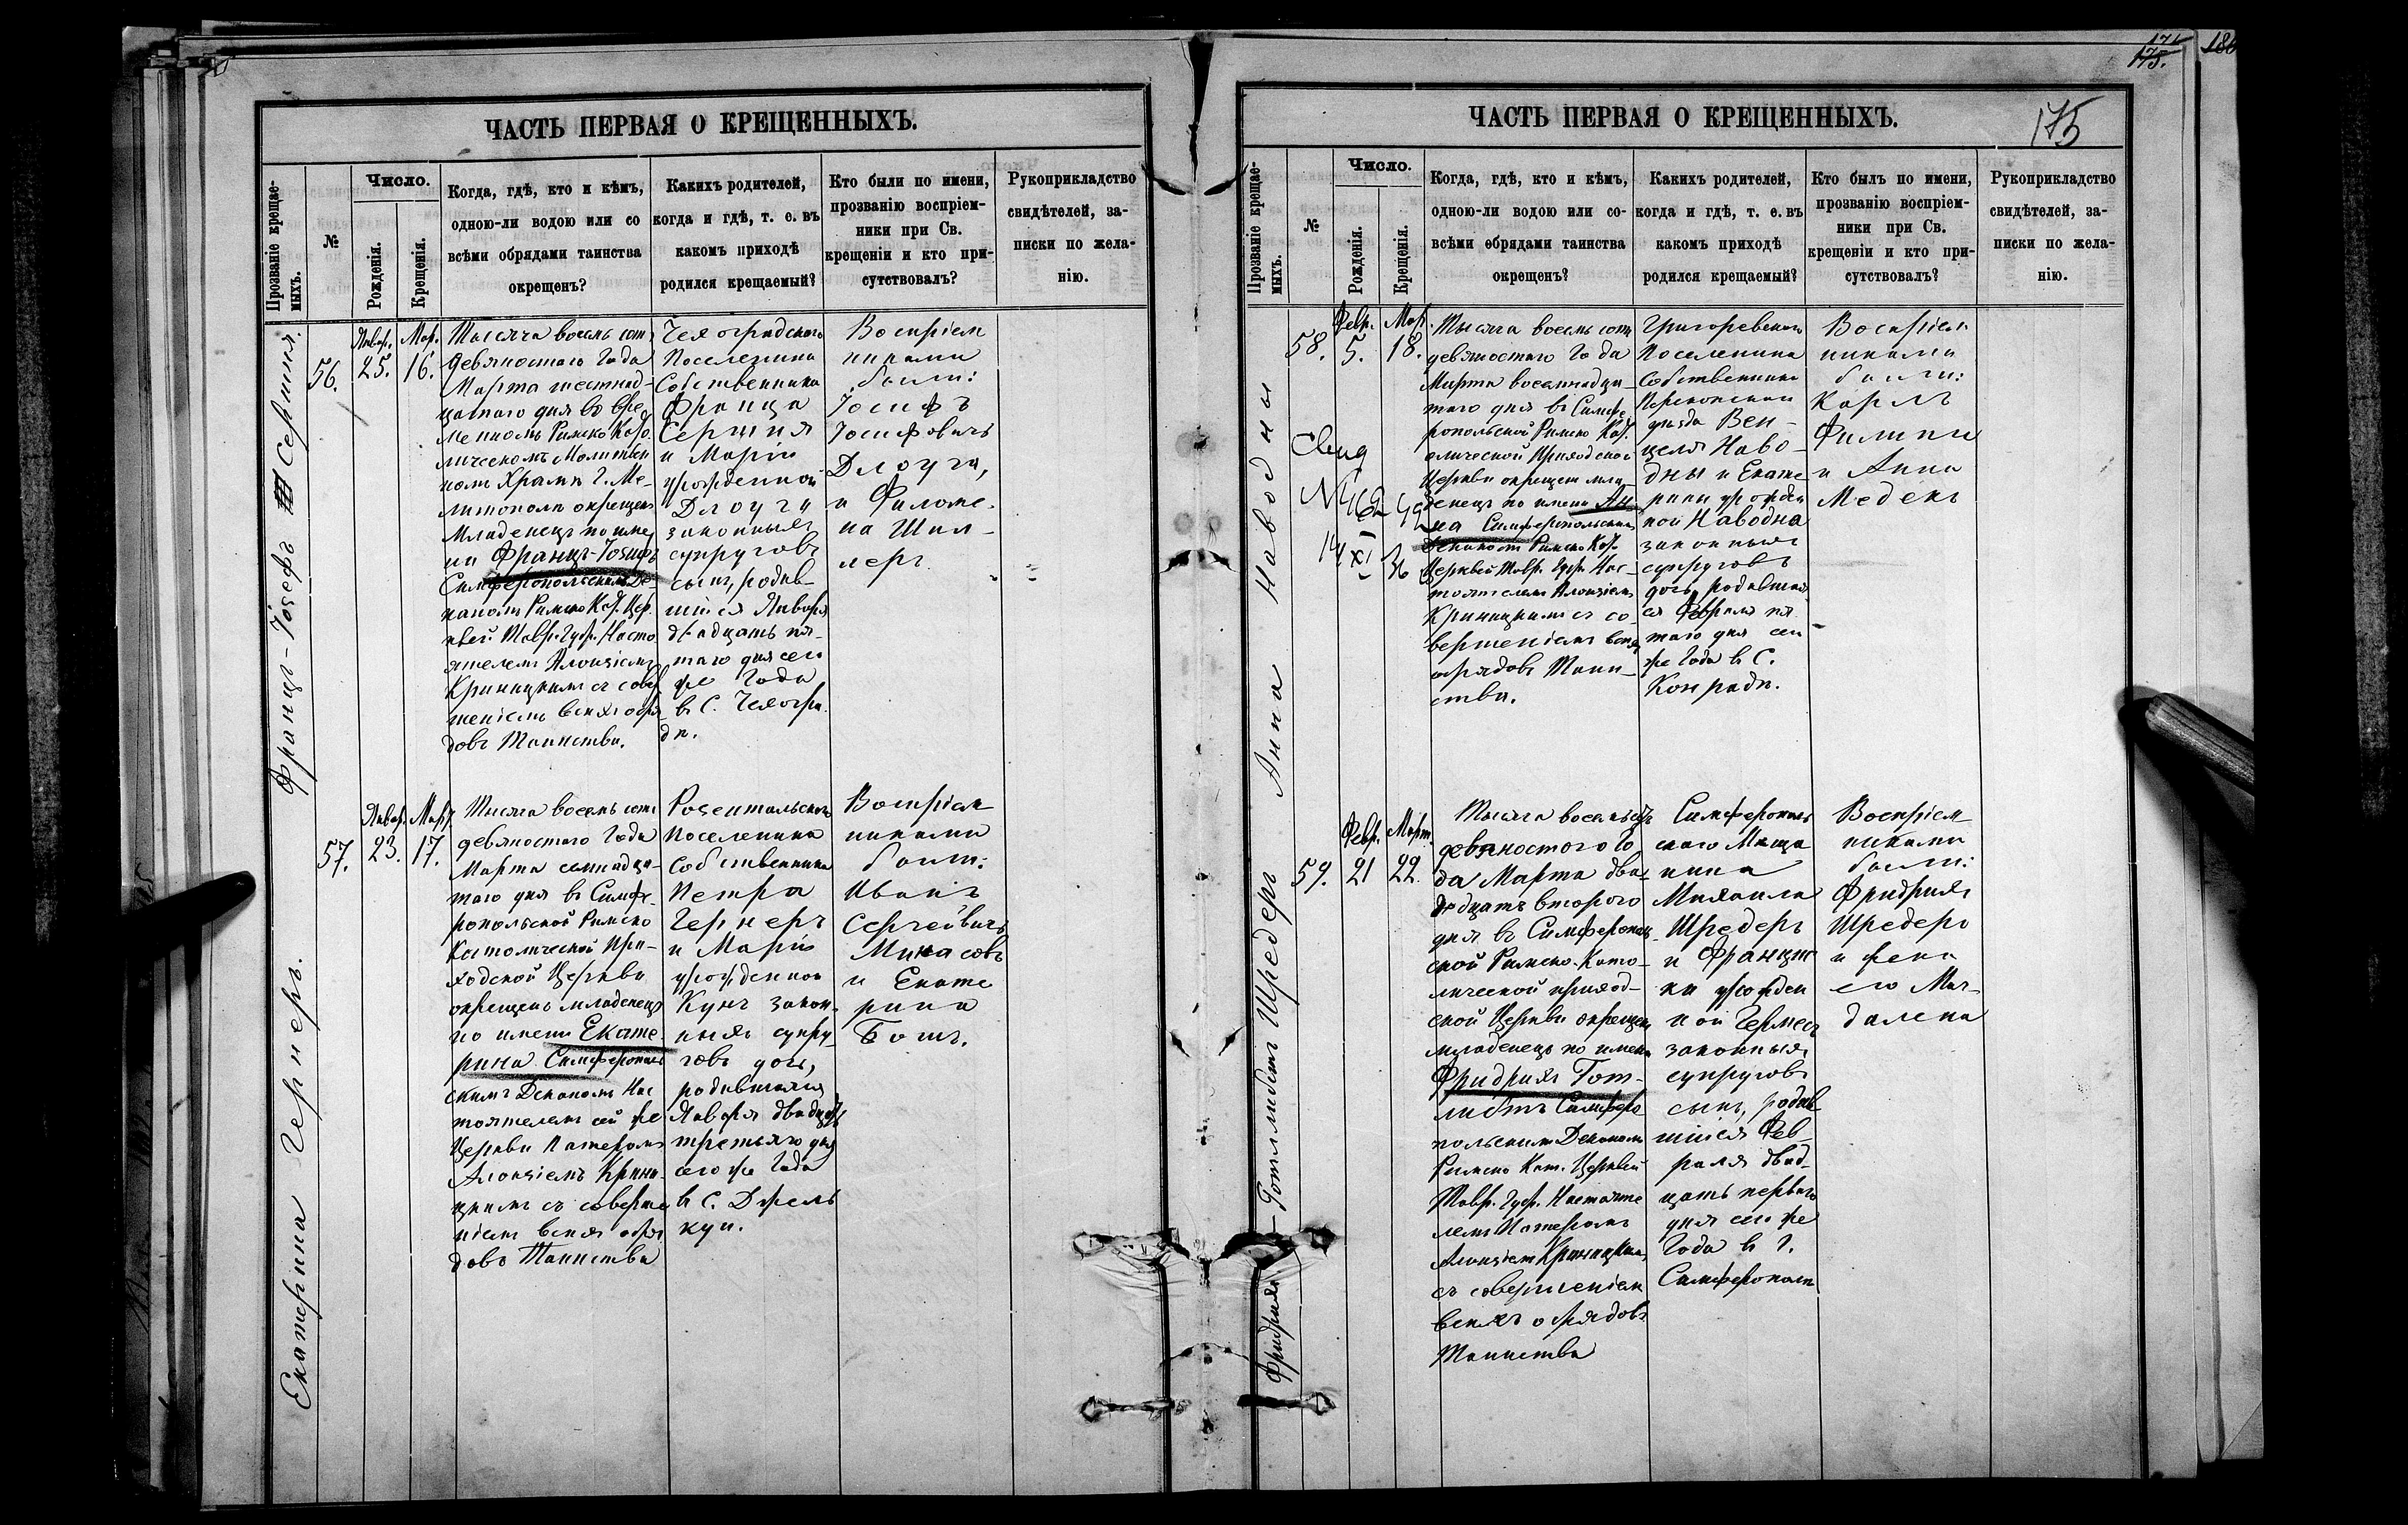 171
175.
180
ЧАСТЬ ПЕРВАЯ О КРЕЩЕННЫХЪ.
Прозваніе крещае-
мыхъ.
№
Число.
Рожденія.
Крещенія.
Когда, гдѣ, кто и кѣмъ,
одною-ли водою или со
всѣми обрядами таинства
окрещенъ?
Какихъ родителей,
когда и гдѣ, т. е. въ
какомъ приходѣ
родился крещаемый?
Кто были по имени,
прозванію воспріем-
ники при Св.
крещеніи и кто при-
сутствовалъ?
Рукоприкладство
свидѣтелей, за-
писки по жела-
нію.
Францъ-Іосефъ Сершня.
56.
Январ.
25.
Мар.
16.
Тысяча восемь сотъ
девяностаго Года
Марта шестнад-
цатаго дня во вре
менномъ Римско Като
лическомъ Молитвен
номъ Храмѣ Г. Ме-
литополѣ окрещенъ
Младенецъ по име
ни Францъ-Іосифъ
Симферопольскимъ Де-
каномъ Римско Кат. Цер.
квей Тавр. Губ. Насто
ятелемъ Алоизіемъ
Криницкимъ съ совер
шеніемъ всѣхъ обря
довъ Таинства.
Чехоградскаго
Поселянина
Собственника
Франца
Сершня
и Маріи
урожденной
Длоуги
законныхъ
супруговъ
сынъ, родив-
шійся Января
двадцать пя-
таго дня сего
же Года
въ С. Чехогра
дѣ.
Воспріем
никами
были:
Іосифъ
Іосифовичъ
Длоуги,
и Филоме-
на Шил-
леръ
Екатерина Гернеръ.
57.
Январ.
23.
Мар.
17.
Тысяча восемь сотъ
девяностаго Года
Марта семнадца-
таго дня въ Симфе-
ропольской Римско
Католической При-
ходской Церкви
окрещенъ младенецъ
по имени Екате
рина Симферополь
скимъ Деканомъ Нас
тоятелемъ сей же
Церкви Патеромъ
Алоизіемъ Крини-
цкимъ съ соверше
ніемъ всѣхъ обря
довъ Таинства
Розентальскаго
Поселянина
Собственника
Петра
Гернеръ
и Маріи
урожденной
Кунъ закон-
ныхъ супру-
говъ дочь,
родившаяся
Января двадцать
третьяго дня
сего же Года
въ С. Джель
куи.
Воспріем
никами
были:
Иванъ
Сергеевичъ
Минасовъ
и Екате
рина
Бошъ.
ЧАСТЬ ПЕРВАЯ О КРЕЩЕННЫХЪ.
175
Прозваніе крещае-
мыхъ.
№
Число.
Рожденія.
Крещенія.
Когда, гдѣ, кто и кѣмъ,
одною-ли водою или со-
всѣми обрядами таинства
окрещенъ?
Какихъ родителей,
когда и гдѣ, т. е. въ
какомъ приходѣ
родился крещаемый?
Кто былъ по имени,
прозванію воспріем-
ники при Св.
крещеніи и кто при-
сутствовалъ?
Рукоприкладство
свидѣтелей, за-
писки по жела-
нію.
Анна Наводны
58.
Февр.
5.
Мар
18.
Свид
Тысяча восемь сотъ
девяностаго Года
Марта восемнадца-
таго дня въ Симфе
ропольской Римско Кат.
олической Приходской
Церкви окрещенъ мла-
денецъ по имени Ан-
на Симферопольскимъ
Деканомъ Римско Кат.
Церквей Тавр. Губ. Нас-
тоятелемъ Алоизіемъ
Криницкимъ съ со-
вершеніемъ всѣхъ
обрядовъ Таин-
ства.
Григорьевскаго
Поселянина
Собственника
Перекопскаго
уѣзда Вен-
целя Наво-
дны и Екате
рины урожден
ной Наводна
законныхъ
супруговъ
дочь родившая
ся Февраля пя
таго дня сего
же Года въ С.
Конради.
Воспріем
никами
были:
Карлъ
Филипи
и Анна
Меденъ
Фридрихъ-Готлибъ Шредеръ
59.
Февр.
21
Март.
22.
Тысяча восемьсотъ
девяностого Го
да Марта два-
дцать второго
дня въ Симферополь-
ской Римско-Като-
лической приход-
ской Церкви окрещенъ
младенецъ по имени
Фридрихъ Гот-
либъ Симферо
польскимъ Деканомъ
Римско Кат. Церквей
Тавр. Губ. Настояте
лемъ Патеромъ
Алоизіемъ Криницкимъ,
съ совершеніемъ
всѣхъ обрядовъ
Таинства
Симферополь
скаго Мѣща
нина
Михаила
Шредеръ
и Францис
ки урожден
ной Гермесъ
законныхъ
супруговъ
сынъ, родив-
шійся Фев-
раля двад-
цать перваго
дня сего же
Года въ Г.
Симферополѣ
Воспріем
никами
были:
Фридрихъ
Шредеръ
и жена
его Маг-
далена